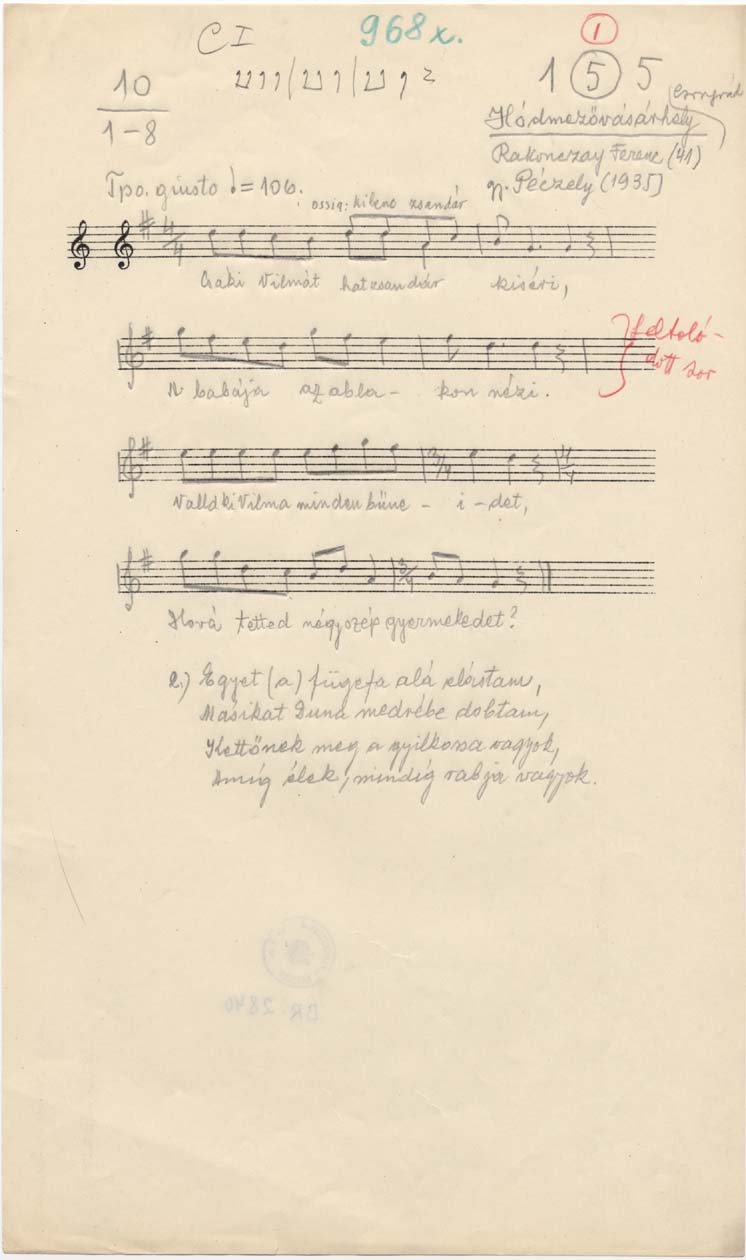 C I
968x.
1
10
1-8
1 5 5
Csongrád
Hódmezővásárhely
Rakonczay Ferenc (41)
gy. Péczely (1935)
Tpo. giusto = 106.
ossia: kilenc zsandár
4/4
Csáki Vilmát hat zsandár kiséri,
A babája az abla- kon nézi.
feltoló-
dott sor
Valld ki Vilma minden bűne - i - det,
3/4
4/4
Hová tetted négy szép gyermekedet?
3/4
2.) Egyet (a) fügefa alá elástam,
Másikat Duna medrébe dobtam,
Kettőnek meg a gyilkossa vagyok,
Amíg élek, mindíg rabja vagyok.
BR 2840